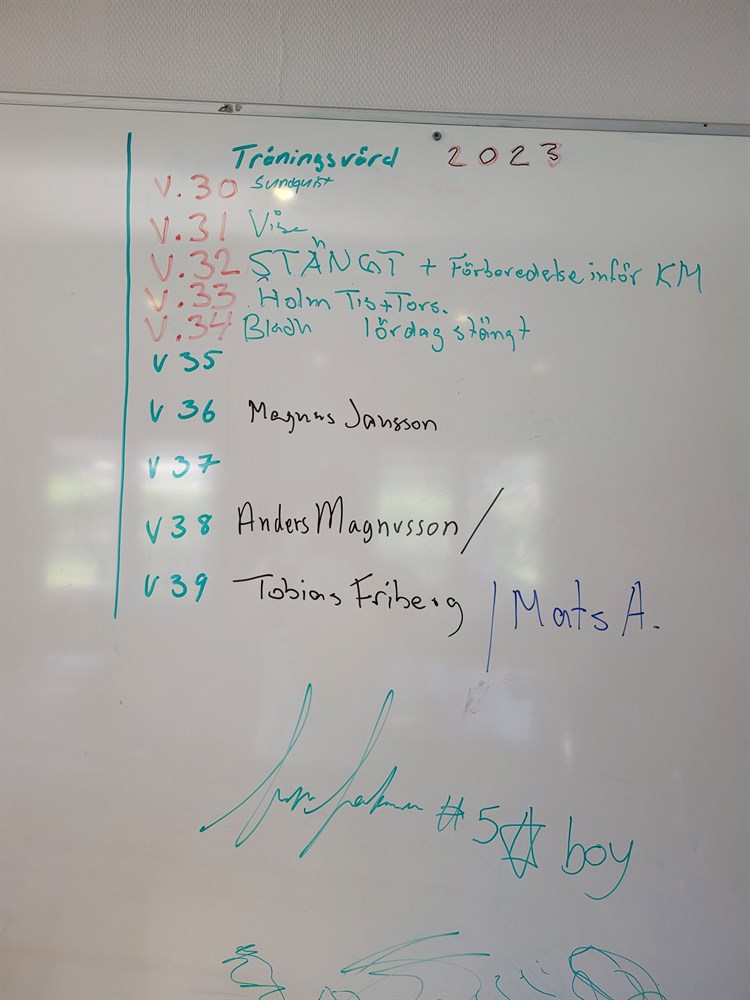 Träningsvärd 2023
V.30 Sundquist
V.31
V.32 STÄNGT + Förberedelse inför KM
V.33 Holm Tis+Tors.
V.34 Bladh lördag stängt
V 35
V 36 Magnus Jansson
V 37
V 38 Anders Magnusson /
V 39 Tobias Friberg / Mats A.
#5 boy